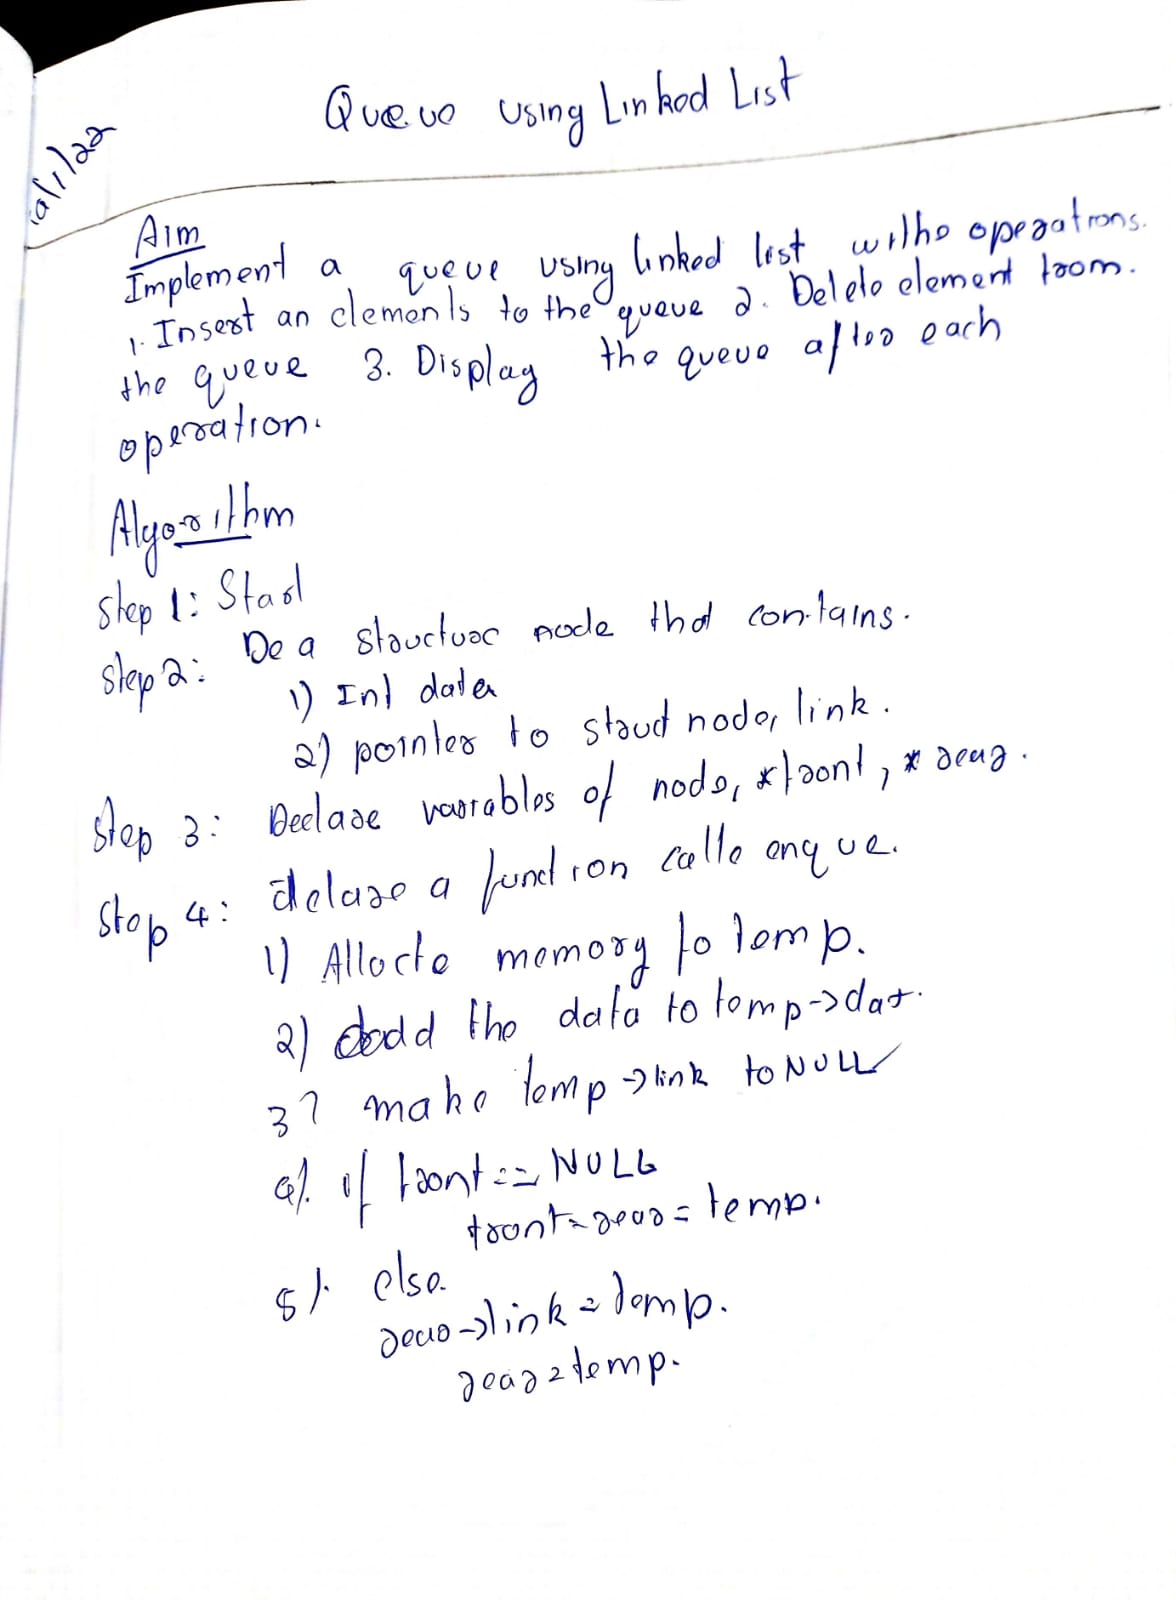 Queue Using Linked List
Aim
Implement a queue using linked list withe operations.
1. Insert an elements to the queue 2. Delete element from.
the queue 3. Display the queue after each
operation.
Algorithm
Step 1: Start
Step 2: De a structure node that contains.
1) Int data
2) pointer to struct node, link.
Step 3: Declare variables of node, *front, *rear.
Step 4: delare a function calle enque.
1) Allocte memory to temp.
2) add the data to temp->dat.
3) make temp->link to NULL
4). if front == NULL
front = rear = temp.
5). else
rear->link = temp.
rear = temp.